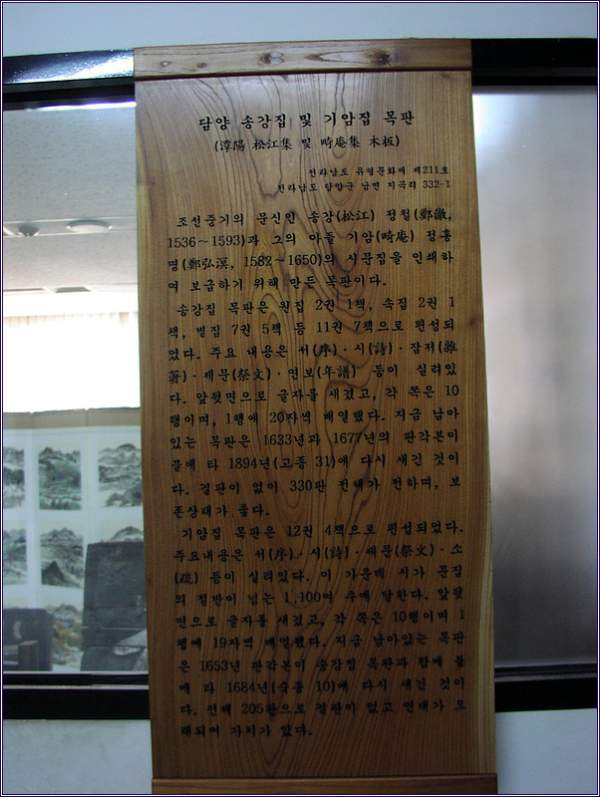 담양 송강집 및 기암집 목판
(潭陽 松江集 및 畸庵集 木板)
전라남도 유형문화재 제211호
전라남도 담양군 남면 지곡리 332-1
조선중기의 문신인 송강(松江) 정철(鄭澈,
1536~1593)과 그의 아들 기암(畸庵) 정홍
명(鄭弘溟, 1582~1650)의 시문집을 인쇄하
여 보급하기 위해 만든 목판이다.
송강집 목판은 원집 2권 1책, 속집 2권 1
책, 별집 7권 5책 등 11권 7책으로 편성되
었다. 주요 내용은 서(序)·시(詩)·잡저(雜
著)·제문(祭文)·연보(年譜) 등이 실려있
다. 앞뒷면으로 글자를 새겼고, 각 쪽은 10
행이며, 1행에 20자씩 배열했다. 지금 남아
있는 목판은 1633년과 1677년의 판각본이
불에 타 1894년(고종 31)에 다시 새긴 것이
다. 결판이 없이 330판 전체가 전하며, 보
존상태가 좋다.
기암집 목판은 12권 4책으로 편성되었다.
주요내용은 서(序)·시(詩)·제문(祭文)·소
(疏) 등이 실려있다. 이 가운데 시가 문집
의 절반이 넘는 1,100여 수에 달한다. 앞뒷
면으로 글자를 새겼고, 각 쪽은 10행이며 1
행에 19자씩 배열했다. 지금 남아있는 목판
은 1653년 판각본이 송강집 목판과 함께 불
에 타 1684년(숙종 10)에 다시 새긴 것이
다. 전체 205판으로 결판이 없고 연대가 오
래되어 가치가 있다.